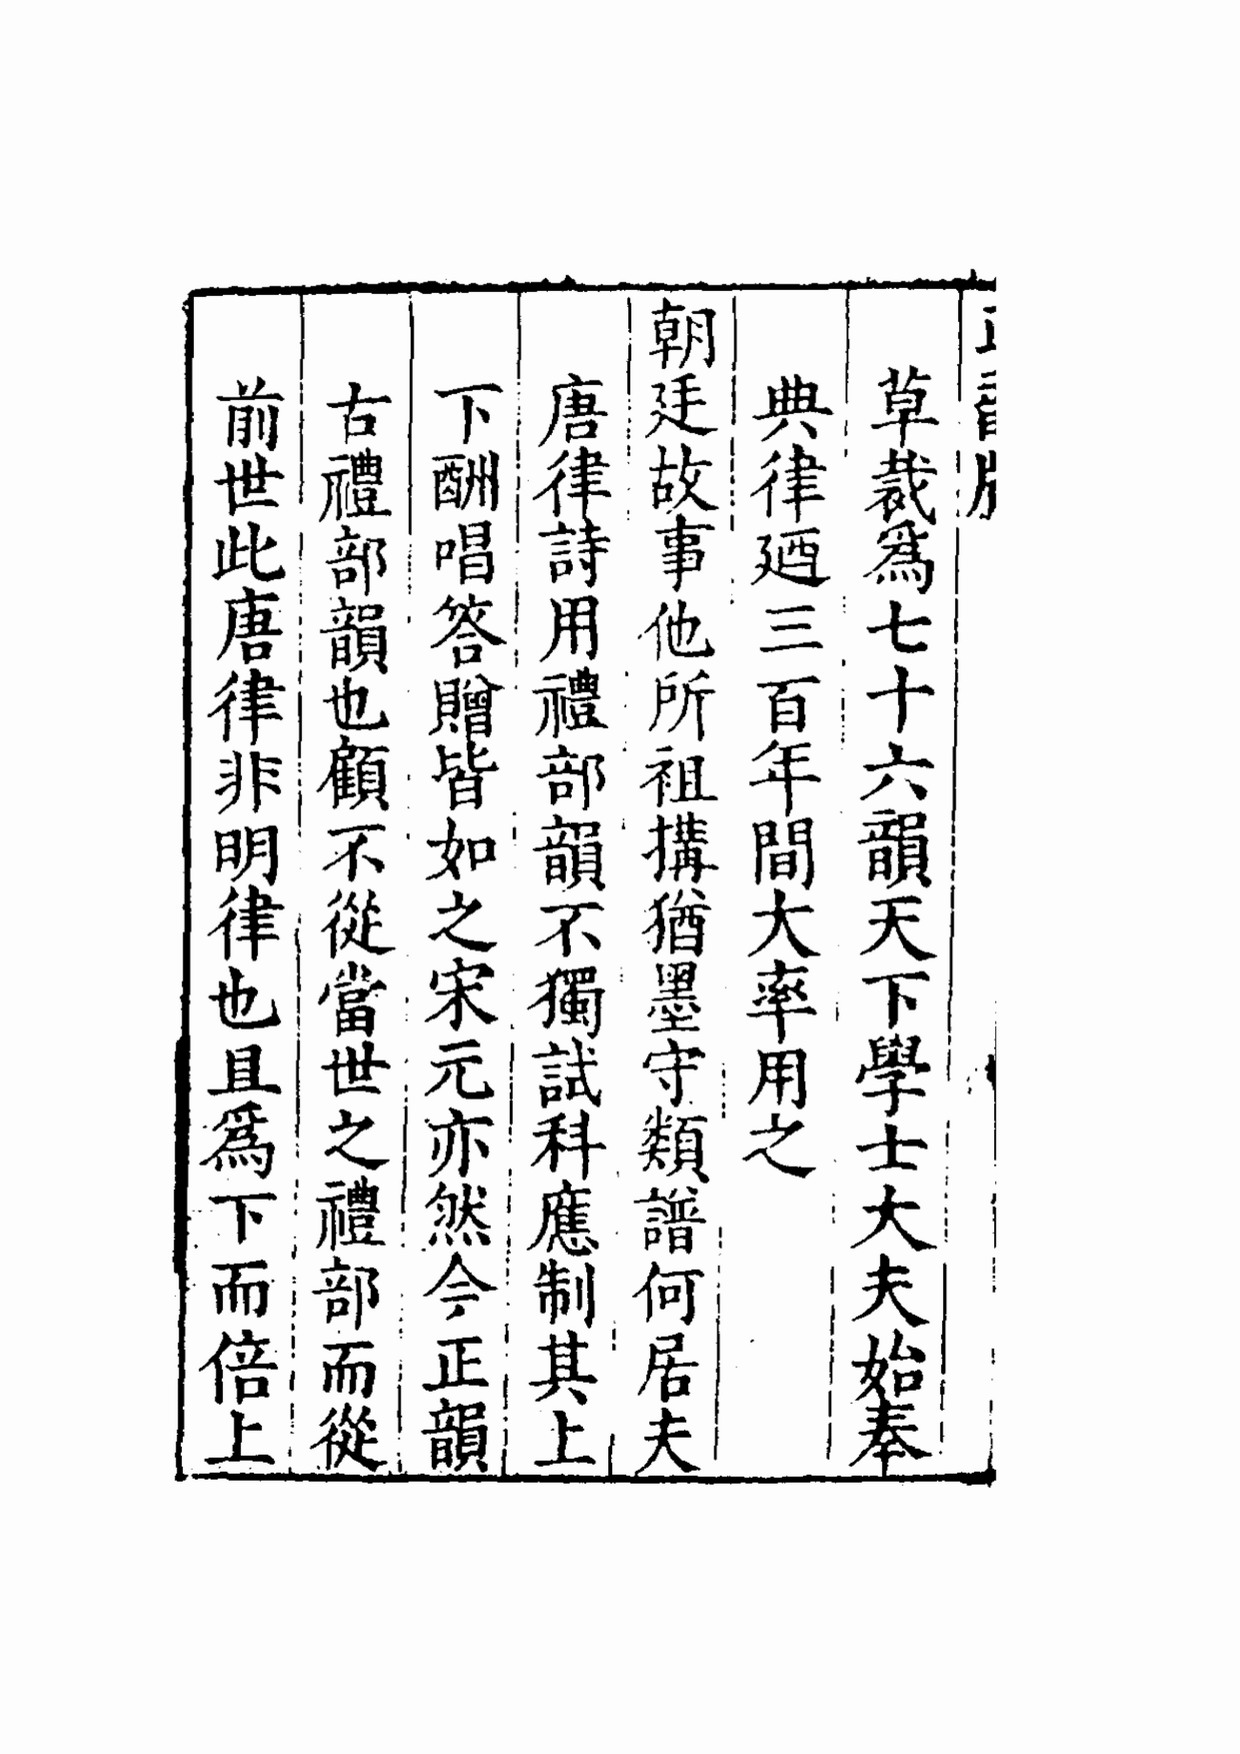 草裁爲七十六韻天下學士大夫始奉
典律廼三百年間大率用之
朝廷故事他所祖搆猶墨守類譜何居夫
唐律詩用禮部韻不獨試科應制其上
下酬唱答贈皆如之宋元亦然今正韻
古禮部韻也顧不從當世之禮部而從
前世此唐律非明律也且爲下而倍上